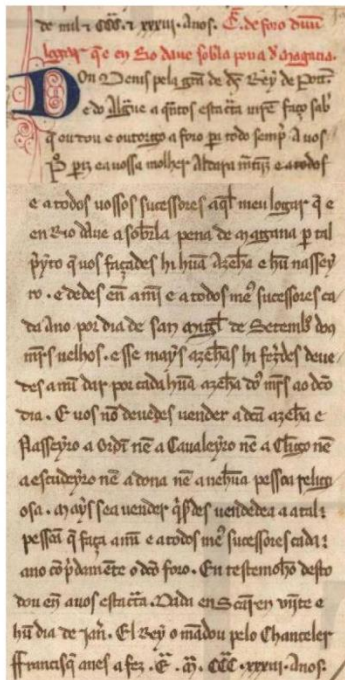 de mil ⁊ CCC. ⁊ xxxvii. Anos. C̃. de foro dũũ
logar q̃ e en Rio daue sobla pena d̃ Magãna.
Don Denis pela gr̃a de d̃s Rey de Port̃
e do Algr̃ue a q̃ntos esta c̃ta uirẽ faço sab̃
q̃ eu dou e outorgo a foro pa todo semp̃. A uos
P̃o p̃iz e a uossa molher Aldara m̃tiz e a todos
e a todos uossos sucessores aq̃l meu logar q̃ e
en Rio daue a sobr̃la pena de Magana p̃ tal
p̃yto q̃ uos façades hi hũa Azeña e hũ nassey
ro. e dedes eñ a mĩ e a todos me⁹ sucessores ca
da Ano por dia de san Migl̃ de Setemb̃ dous
mr̃s uelhos. e sse mays azeñas hi fez̃des deue
des a mĩ dar por cada hũa azeña do⁹ mr̃s ao dc̃o
dia. E uos nõ deuedes uender a dc̃a azeña e
Nasseyro a Ordĩ nẽ a Caualeyro nẽ a Cl̃igo nẽ
a escudeyro nẽ a dona nẽ a nẽhũa pessoa religi
osa. Mays se a uender q̃s̃des uendedea a atal :
pessoa q̃ faça a mĩ e a todos me⁹ sucessores cada :
ano cõp̃damẽte o dc̃o foro. En testemoño desto
dou eñ a uos esta c̃ta. Dada en Sc̃aren vijnte e
hũ dia de Jan̄. El Rey o mãdou pelo Chanceler
ffrancisq̃ anes a fez. E᷈. M̃. CCC. xxxvii. Anos.